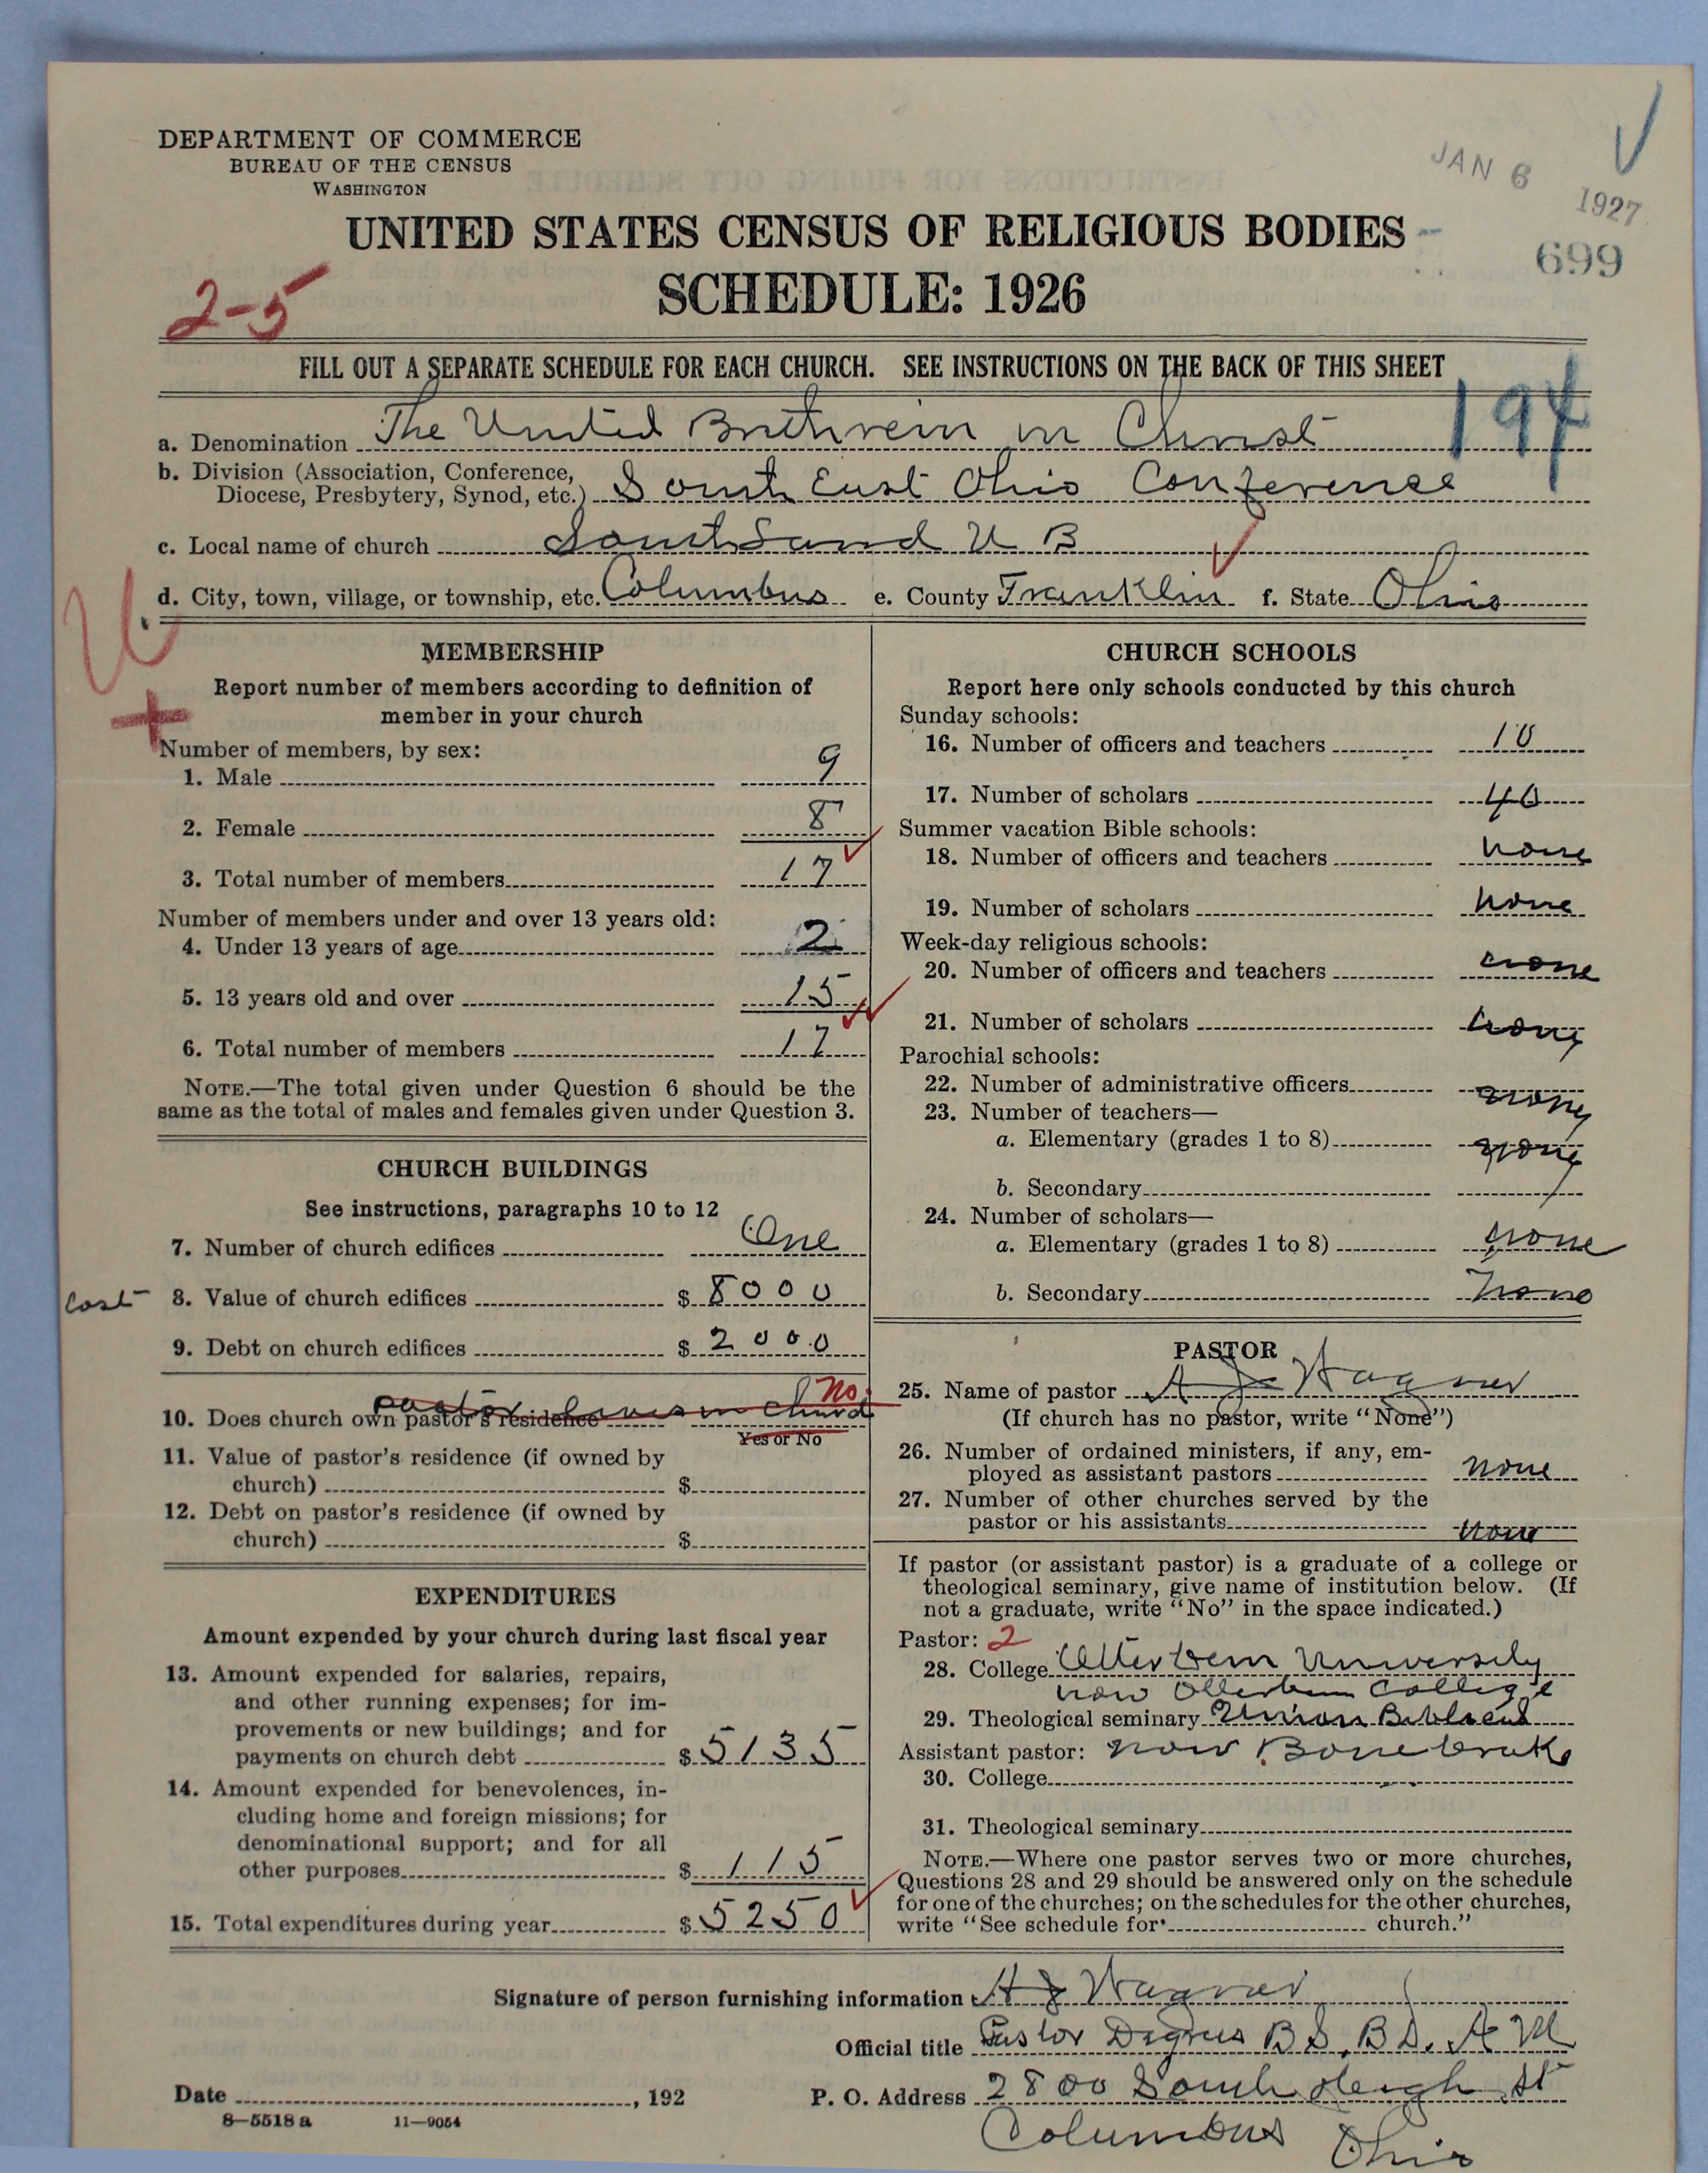 DEPARTMENT OF COMMERCE
BUREAU OF THE CENSUS
WASHINGTON
JAN 6 1927
UNITED STATES CENSUS OF RELIGIOUS BODIES
699
SCHEDULE: 1926
2-5
FILL OUT A SEPARATE SCHEDULE FOR EACH CHURCH. SEE INSTRUCTIONS ON THE BACK OF THIS SHEET
194
a. Denomination The United Brethren in Christ
b. Division (Association, Conference,
Diocese, Presbytery, Synod, etc.) South East Ohio Conference
c. Local name of church U B
d. City, town, village, or township, etc. Columbus e. County Franklin f. State Ohio
U
+
MEMBERSHIP
Report number of members according to definition of
member in your church
Number of members, by sex:
1. Male 9
2. Female 8
3. Total number of members 17
Number of members under and over 13 years old:
4. Under 13 years of age 2
5. 13 years old and over 15
6. Total number of members 17
NOTE.—The total given under Question 6 should be the
same as the total of males and females given under Question 3.
CHURCH BUILDINGS
See instructions, paragraphs 10 to 12
7. Number of church edifices One
Cost 8. Value of church edifices $ 8000
9. Debt on church edifices $ 2000
pastor lives in church No.
10. Does church own pastor's residence
Yes or No
11. Value of pastor's residence (if owned by
church) $
12. Debt on pastor's residence (if owned by
church) $
EXPENDITURES
Amount expended by your church during last fiscal year
13. Amount expended for salaries, repairs,
and other running expenses; for im-
provements or new buildings; and for
payments on church debt $ 5135
14. Amount expended for benevolences, in-
cluding home and foreign missions; for
denominational support; and for all
other purposes $ 115
15. Total expenditures during year $ 5250
CHURCH SCHOOLS
Report here only schools conducted by this church
Sunday schools:
16. Number of officers and teachers 10
17. Number of scholars 40
Summer vacation Bible schools:
18. Number of officers and teachers none
19. Number of scholars none
Week-day religious schools:
20. Number of officers and teachers none
21. Number of scholars none
Parochial schools:
22. Number of administrative officers none
23. Number of teachers—
a. Elementary (grades 1 to 8) none
b. Secondary
24. Number of scholars—
a. Elementary (grades 1 to 8) none
b. Secondary none
PASTOR
25. Name of pastor A J Wagner
(If church has no pastor, write "None")
26. Number of ordained ministers, if any, em-
ployed as assistant pastors none
27. Number of other churches served by the
pastor or his assistants none
If pastor (or assistant pastor) is a graduate of a college or
theological seminary, give name of institution below. (If
not a graduate, write "No" in the space indicated.)
Pastor: 2
28. College Otterbein University
now Otterbein College
29. Theological seminary Union Biblical
Assistant pastor: now Bonebrake
30. College
31. Theological seminary
NOTE.—Where one pastor serves two or more churches,
Questions 28 and 29 should be answered only on the schedule
for one of the churches; on the schedules for the other churches,
write "See schedule for church."
Signature of person furnishing information A J Wagner
Official title Pastor Degrees B S. B D. A M
Date , 192 P. O. Address 2800 South High St
8—5518 a 11—9054
Columbus Ohio